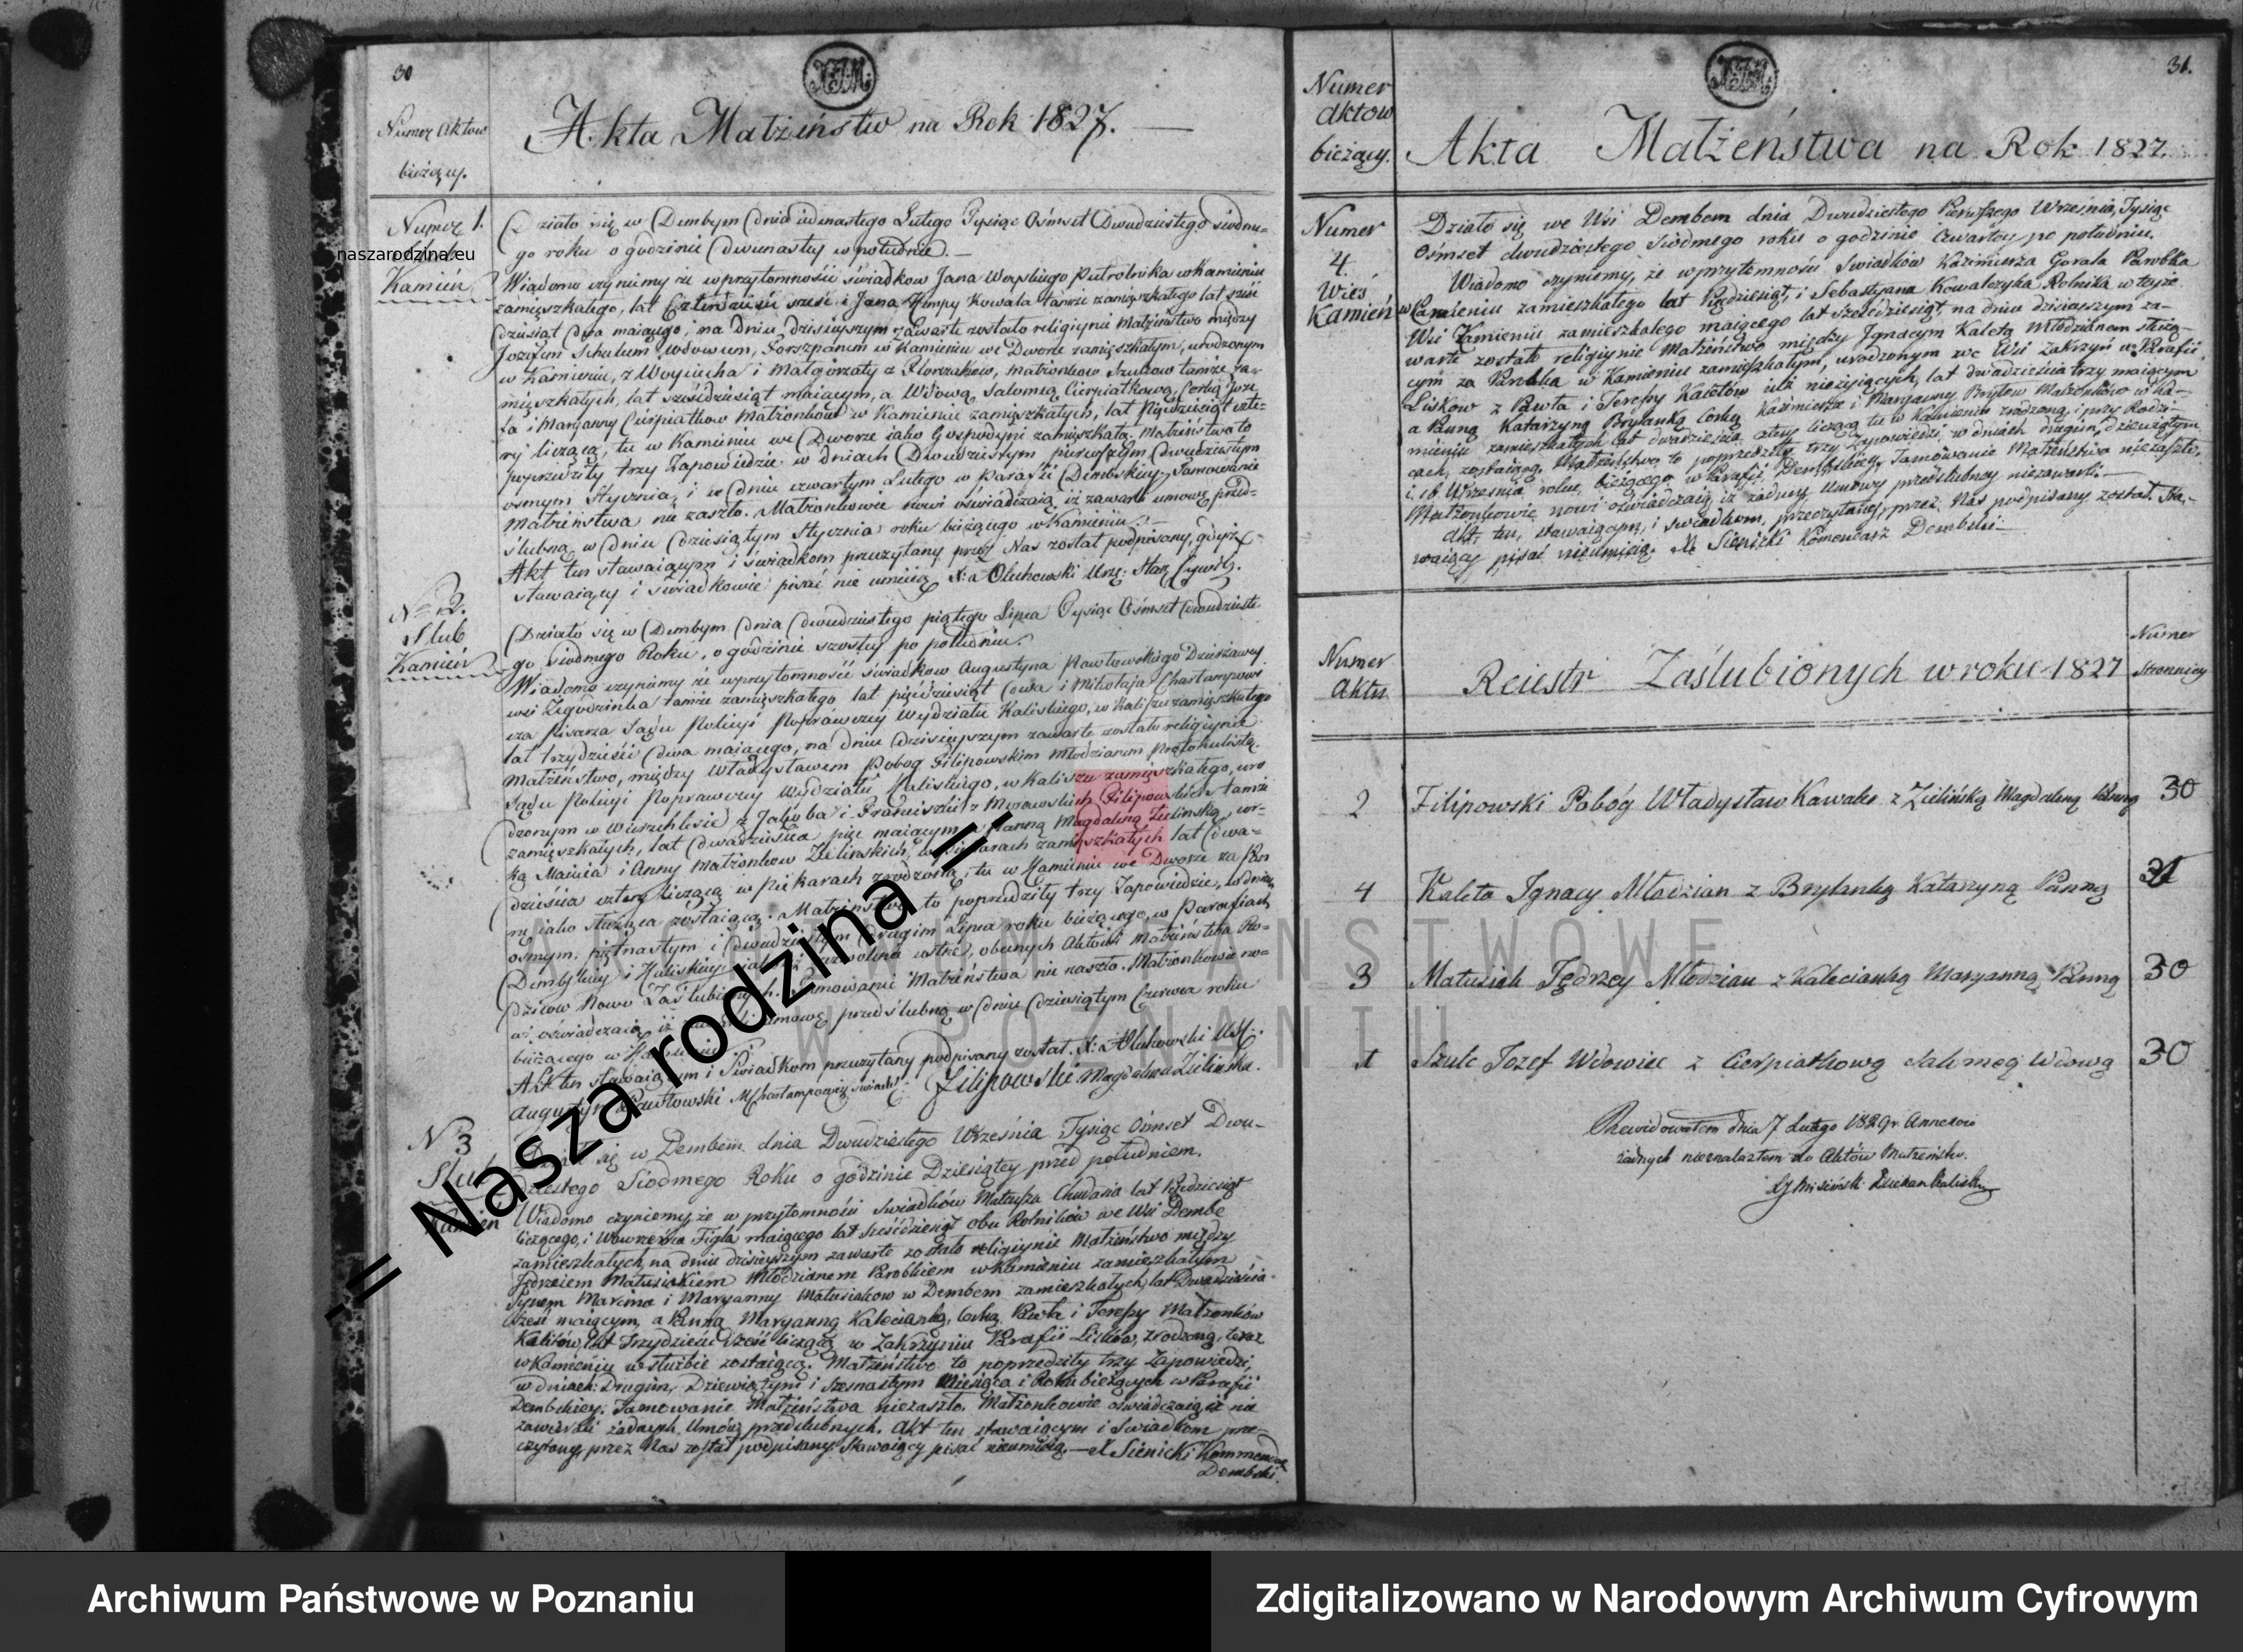 30
Numer Aktow
bieżący.
Akta Małżeństw na Rok 1827.
Numer 1.
Ślub
naszarodzina.eu
Kamień
Działo się w Dembym dnia iedenastego Lutego Tysiąc Ośmset Dwudziestego siodme-
go roku o godzinie dwunastey w południe.
Wiadomo czynimy że w przytomności świadkow Jana
zamięszkałego, lat Czterdzieści sześć i Jana Kowala tamże zamięszkałego lat sześć
dziesiąt dwa maiącego, na dniu dzisieyszym zawarte zostało religiynie Małżeństwo między
Jozefem Wdowcem, w Kamieniu we Dworze zamięszkałym, urodzonym
w Kamieniu, z Woyciecha i Małgorzaty z Małżonkow Szulcow tamże za-
mięszkałych, lat sześćdziesiąt maiącym, a Wdową Salomeą Cierpiatkową, Corką Joze
fa i Maryanny Małżonkow w Kamieniu zamięszkałych, lat Pięćdziesiąt czte-
ry liczącą, tu w Kamieniu we Dworze iako Gospodyni zamięszkałą. Małżeństwo to
poprzedziły trzy Zapowiedzie w dniach Dwudziestym pierwszym Dwudziestym
osmym Stycznia, i w dniu czwartym Lutego w Parafii Dembskiey. Tamowanie
Małżeństwa nie zaszło. Małżonkowie nowi oświadczaią iż zawarli umowę przed-
ślubną w dniu dziesiątym Stycznia roku bieżącego w Kamieniu.
Akt ten stawaiącym i świadkom przeczytany przez Nas został podpisany, gdyż
stawaiący i świadkowie pisać nie umieią X: Oluhowski Urz: Stan: Cywil:
No 2.
Slub
Kamień
Działo się w Dembym dnia dwudziestego piątego Lipca Tysiąc Ośmset dwudzieste
go siodmego Roku, o godzinie szostey po południu.
Wiadomo czynimy że w przytomności świadkow Augustyna Pawłowskiego Dzierżawcy
wsi Zegodzinka tamże zamięszkałego lat pięćdziesiąt dwa i Mikołaja Charłampowi
cza Pisarza Sądu Policyi Poprawczey Wydziału Kaliskiego, w Kaliszu zamięszkałego
lat trzydzieści dwa maiącego, na dniu dzisieyszym zawarte zostało religiynie
Małżeństwo, między Władysławem Pobog Filipowskim Młodzianem Protokulistą
Sądu Policyi Poprawczey Wydziału Kaliskiego, w Kaliszu zamięszkałego, uro
dzonym w z Jakuba i Franciszki z Morawskich Filipowskich tamże
zamięszkałych, lat dwadzieścia pięć maiącym, a Panną Magdaleną Zielinską, cor-
ką Macieia i Anny Małżonkow Zielinskich, w Piekarach zamięszkałych lat dwa-
dzieścia cztery liczącą w Piekarach zrodzoną, tu w Kamieniu we Dworze za Pan
nę iako służąca zostaiącą. Małżeństwo to poprzedziły trzy Zapowiedzie, w dniu
osmym, piętnastym i dwudziestym drugim Lipca roku bieżącego, w Parafiach
Dembskiey i Kaliskiey ustne, obecnych Aktowi Małżeństwa Ro-
dzicow Nowo Zaślubionych. Tamowanie Małżeństwa nie zaszło. Małżonkowie no-
wi oświadczaią iż umowę przedślubną w dniu dziesiątym Czerwca roku
bieżącego w
Akt ten stawaiącym i Swiadkom przeczytany podpisany został. X: Oluhowski
Augustyn Pawłowski Filipowski Magdalena Zielinska.
No 3
Slub
Kamien
Działo się w Dembem dnia Dwudziestego Września Tysiąc Ośmset Dwu-
dziestego Siodmego Roku o godzinie Dziesiątey przed południem.
Wiadomo czyniemy, że w przytomności Swiadków Mateusza Chudasia lat Pięćdziesiąt
liczącego, i Wawrzeńca Figla maiącego lat Sześćdziesiąt obu Rolników we Wsi Dembe
zamieszkałych, na dniu dzisieyszym zawarte zostało religiynie Małżeństwo między
Jędrzeiem Matusiakiem Młodzianem Parobkiem w Kamieniu zamieszkałym
Synem Marcina i Maryanny Matusiakow w Dembem zamieszkałych, lat Dwadzieścia
sześć maiącym, a Panną Maryanną Kalecianką, Corką Pawła i Teressy Małżonków
Kaletów, lat Trzydzieści Sześć liczącą w Zakrzyniu Parafii Lisków, zrodzoną, teraz
w Kamieniu w służbie zostaiącą. Małżeństwo to poprzedziły trzy Zapowiedzi,
w dniach: Drugim, Dziewiątym i Szesnastym Miesiąca i Roku bieżących w Parafii
Dembskiey. Tamowanie Małżeństwa niezaszło. Małżonkowie oświadczaią iż nie
zawierali żadnych Umów przedślubnych. Akt ten stawaiącym i Swiadkom prze-
czytany, przez Nas został podpisany. Stawaiący pisać nieumieią.— X Sienicki Kommendarz
Dembski.
31.
Numer
aktow
bieżący.
Akta Małżeństwa na Rok 1827.
Numer
4.
Wieś
Kamień
Działo się we Wsi Dembem dnia Dwudziestego Pierwszego Września, Tysiąc
Ośmset dwudziestego Siodmego roku o godzinie Czwartey po południu.
Wiadomo czyniemy, że w przytomności Swiadków Kazimierza Gorala Parobka
w Kamieniu zamieszkałego lat Pięćdziesiąt, i Sebastyana Kowalczyka Rolnika w teyże
Wsi Kamieniu zamieszkałego maiącego lat sześćdziesiąt, na dniu dzisieyszym za-
warte zostało religiynie Małżeństwo między Jgnacym Kaletą Młodzianem służą-
cym za Parobka w Kamieniu zamieszkałym, urodzonym we Wsi Zakrzyn w Parafii
Lisków z Pawła i Teressy Kaletów iuż nieżyiących, lat dwadzieścia trzy maiącym
a Panną Katarzyną Brylanką Corką Kaźmierza i Maryanny Brylow Małżonków w Ka-
mieniu zamieszkałych lat dwadzieścia cztery liczącą tu w Kamieniu zrodzoną, i przy Rodzi-
cach, zostaiącą. Małżeństwo to poprzedziły trzy Zapowiedzi w dniach drugim, dziewiątym
i 16 Września roku bieżącego w Parafii Dembskiey. Tamowanie Małżeństwa niezaszło,
Małżonkowie nowi oświadczaią iż żadney Umowy przedślubney niezawarli.—
Akt ten, stawaiącym, i swiadkom, przeczytaney, przez Nas podpisany został. Sta-
waiący pisać nieumieią. X Sienicki Komendarz Dembski
Numer
Aktu
Reiestr Zaślubionych w roku 1827
Numer
Stronnicy
2 Filipowski Pobóg Władysław Kawaler z Zielińską Magdaleną Panną 30
4 Kaleta Jgnacy Młodzian z Brylanką Katarzyną Panną 31
3 Matusiak Jędrzey Młodzian z Kalecianką Maryanną Panną 30
1 Szulc Jozef Wdowiec z Cierpiatkową Salomeą Wdową 30
Rewidowałem dnia 7 Lutego 1829 r. Annexow
żadnych nieznalazłem do Aktów Małżeństw.
ARCHIWUM PAŃSTWOWE
W POZNANIU
-= Nasza rodzina =-
Archiwum Państwowe w Poznaniu
Zdigitalizowano w Narodowym Archiwum Cyfrowym